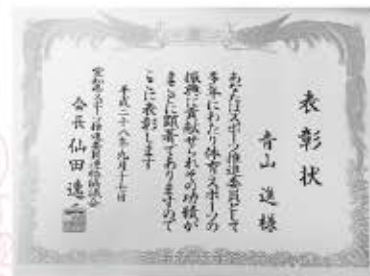 表彰状
青山 進 様
あなたはスポーツ推進委員として
多年にわたり体育スポーツの
振興に貢献せられその功績が
まことに顕著でありますので
ここに表彰します
平成二十八年九月十七日
スポーツ推進委員
会長 仙田